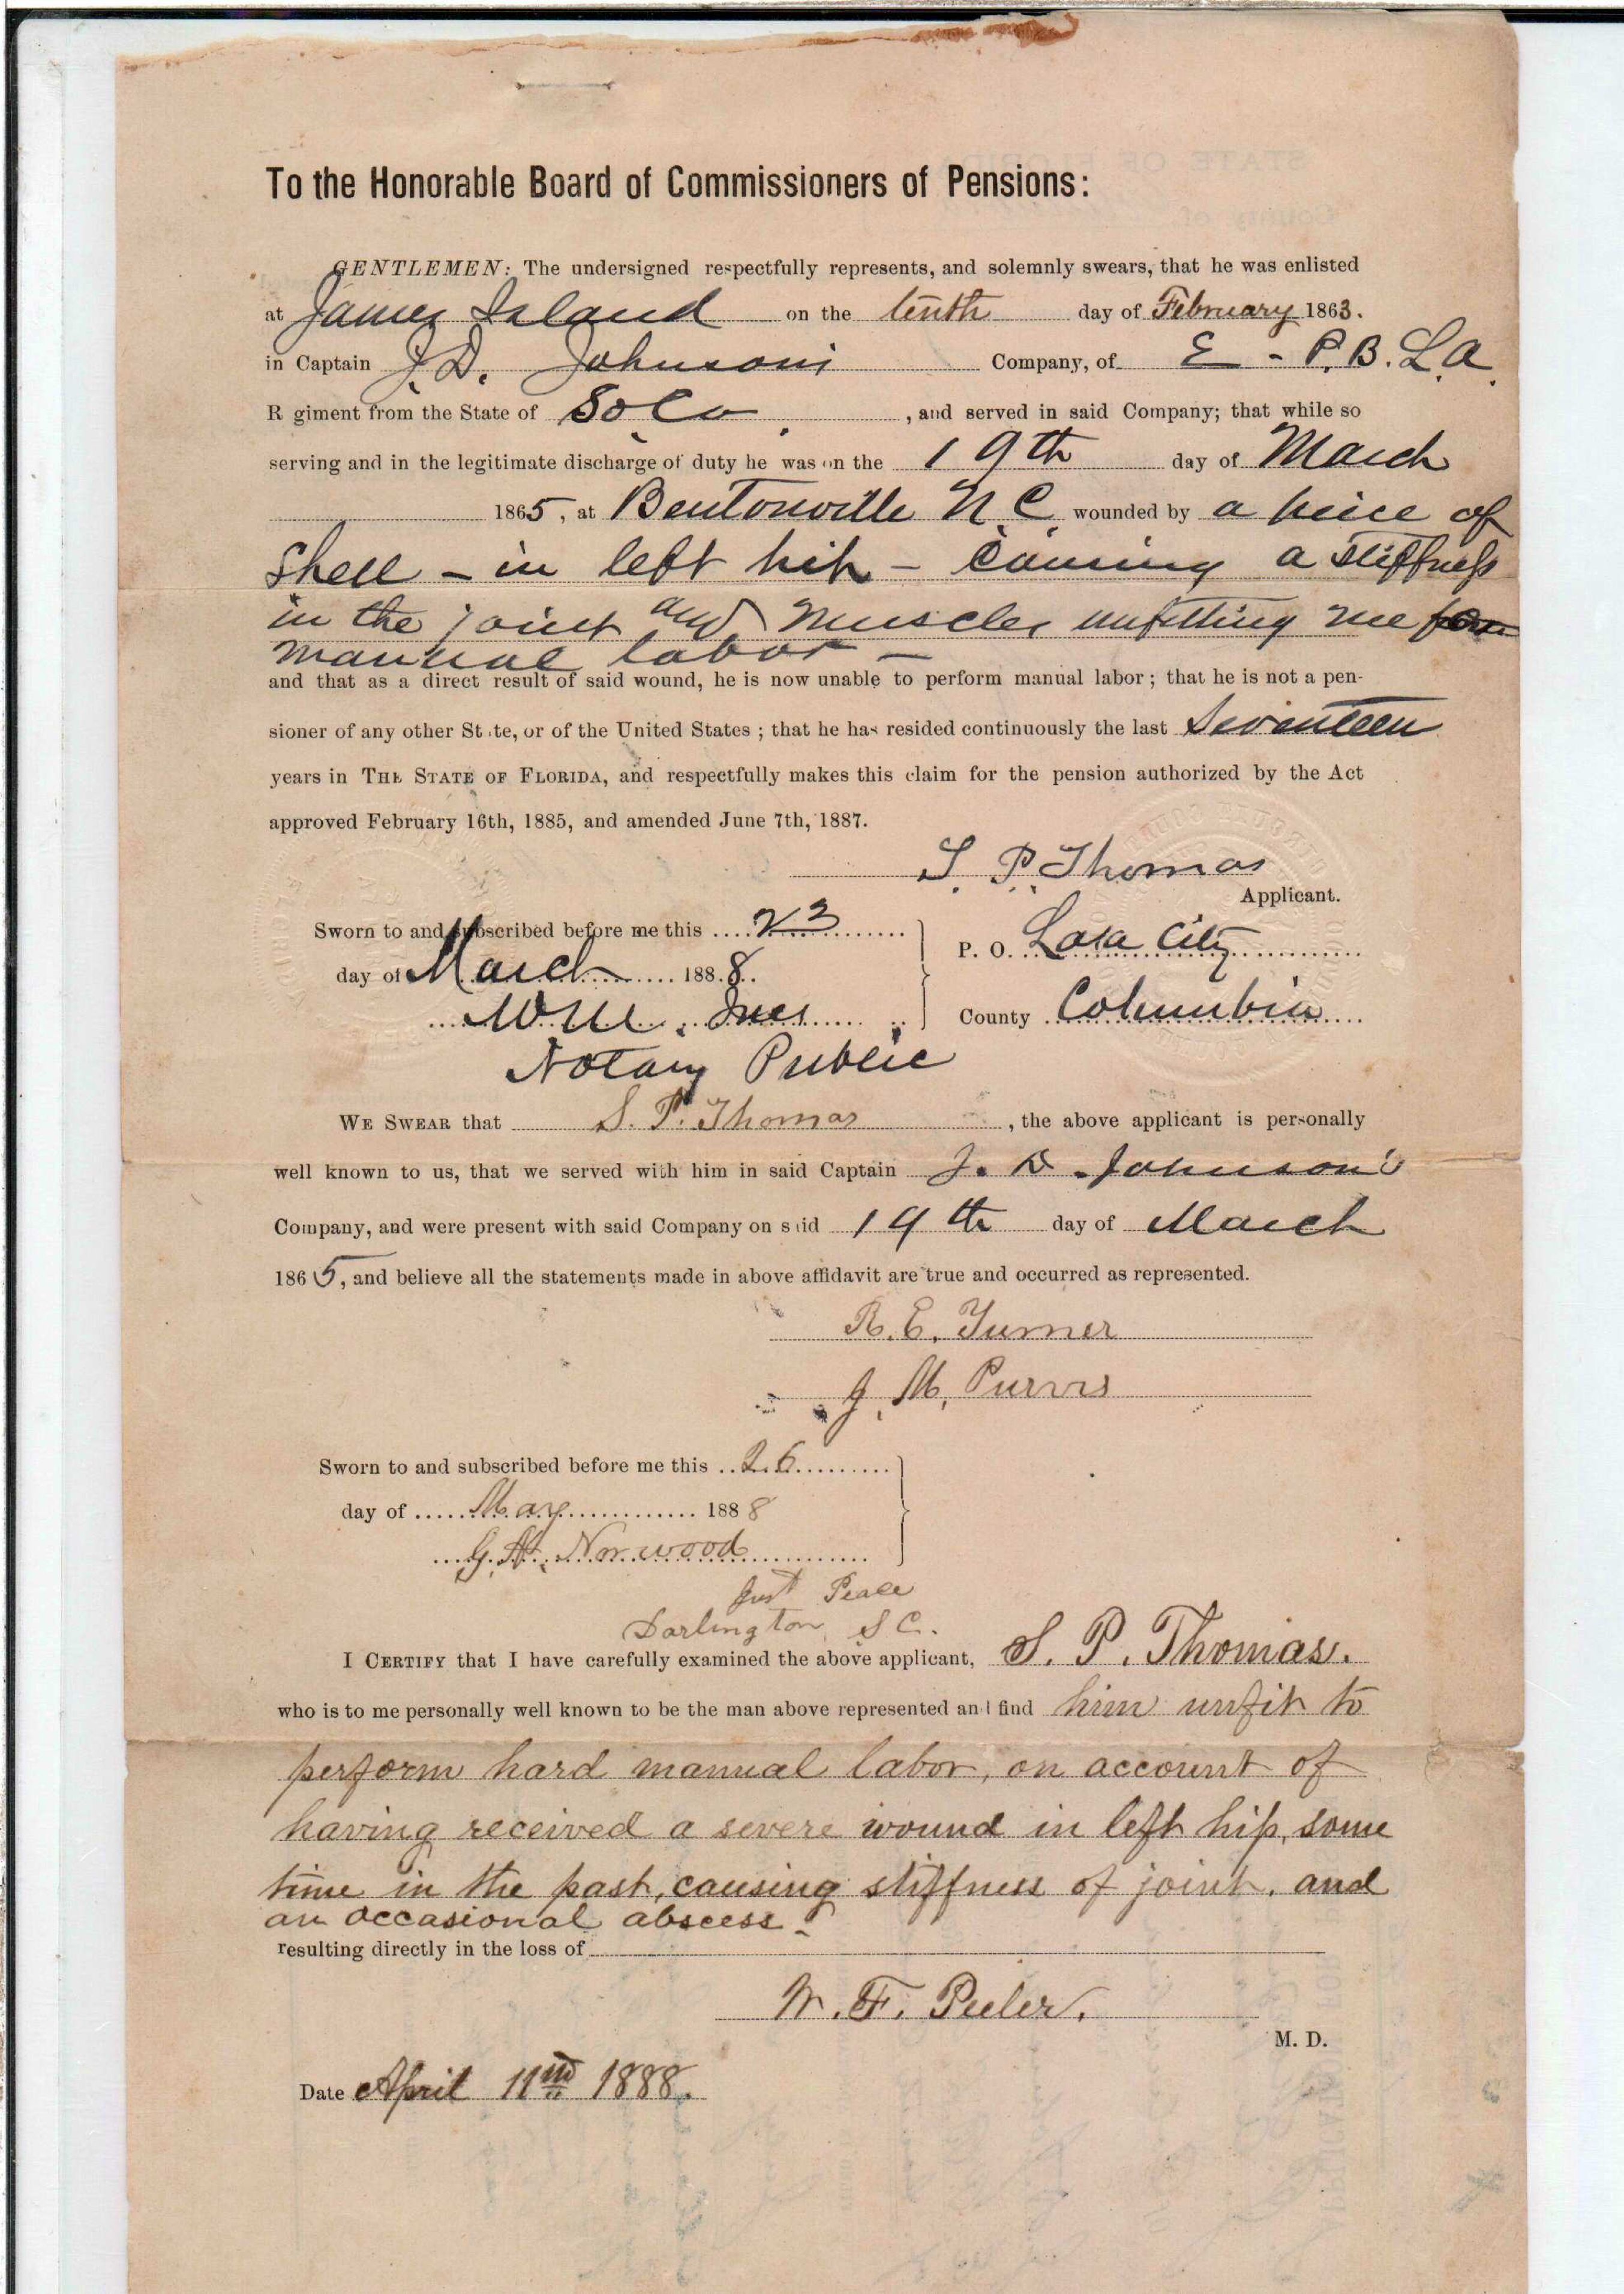 To the Honorable Board of Commissioners of Pensions:
GENTLEMEN: The undersigned respectfully represents, and solemnly swears, that he was enlisted
at James Island on the tenth day of February 1863.
in Captain J. D. Johnsons Company, of E - P. B. L. A.
R giment from the State of So Ca , and served in said Company; that while so
serving and in the legitimate discharge of duty he was on the 19th day of March
1865, at Bentonville N. C. wounded by a peice of
Shell - in left hip - causing a stiffness
in the joint and muscles unfitting me for
manual labor -
and that as a direct result of said wound, he is now unable to perform manual labor; that he is not a pen-
sioner of any other State, or of the United States; that he has resided continuously the last Seventeen
years in THE STATE OF FLORIDA, and respectfully makes this claim for the pension authorized by the Act
approved February 16th, 1885, and amended June 7th, 1887.
S. P. Thomas
Applicant.
Sworn to and subscribed before me this 23
day of March 1888.
Wm. Ives
Notary Public
P. O. Lake City
County Columbia
WE SWEAR that S. P. Thomas , the above applicant is personally
well known to us, that we served with him in said Captain J. D. Johnson's
Company, and were present with said Company on said 19th day of March
1865, and believe all the statements made in above affidavit are true and occurred as represented.
R. E. Turner
J. M. Purvis
Sworn to and subscribed before me this 26
day of May 1888
G. H. Norwood
Just Peace
Darlington, S C.
I CERTIFY that I have carefully examined the above applicant, S. P. Thomas.
who is to me personally well known to be the man above represented and find him unfit to
perform hard manual labor, on account of
having received a severe wound in left hip, some
time in the past, causing stiffness of joint, and
an occasional abscess.
resulting directly in the loss of
W. F. Peeler.
M. D.
Date April 11th 1888.